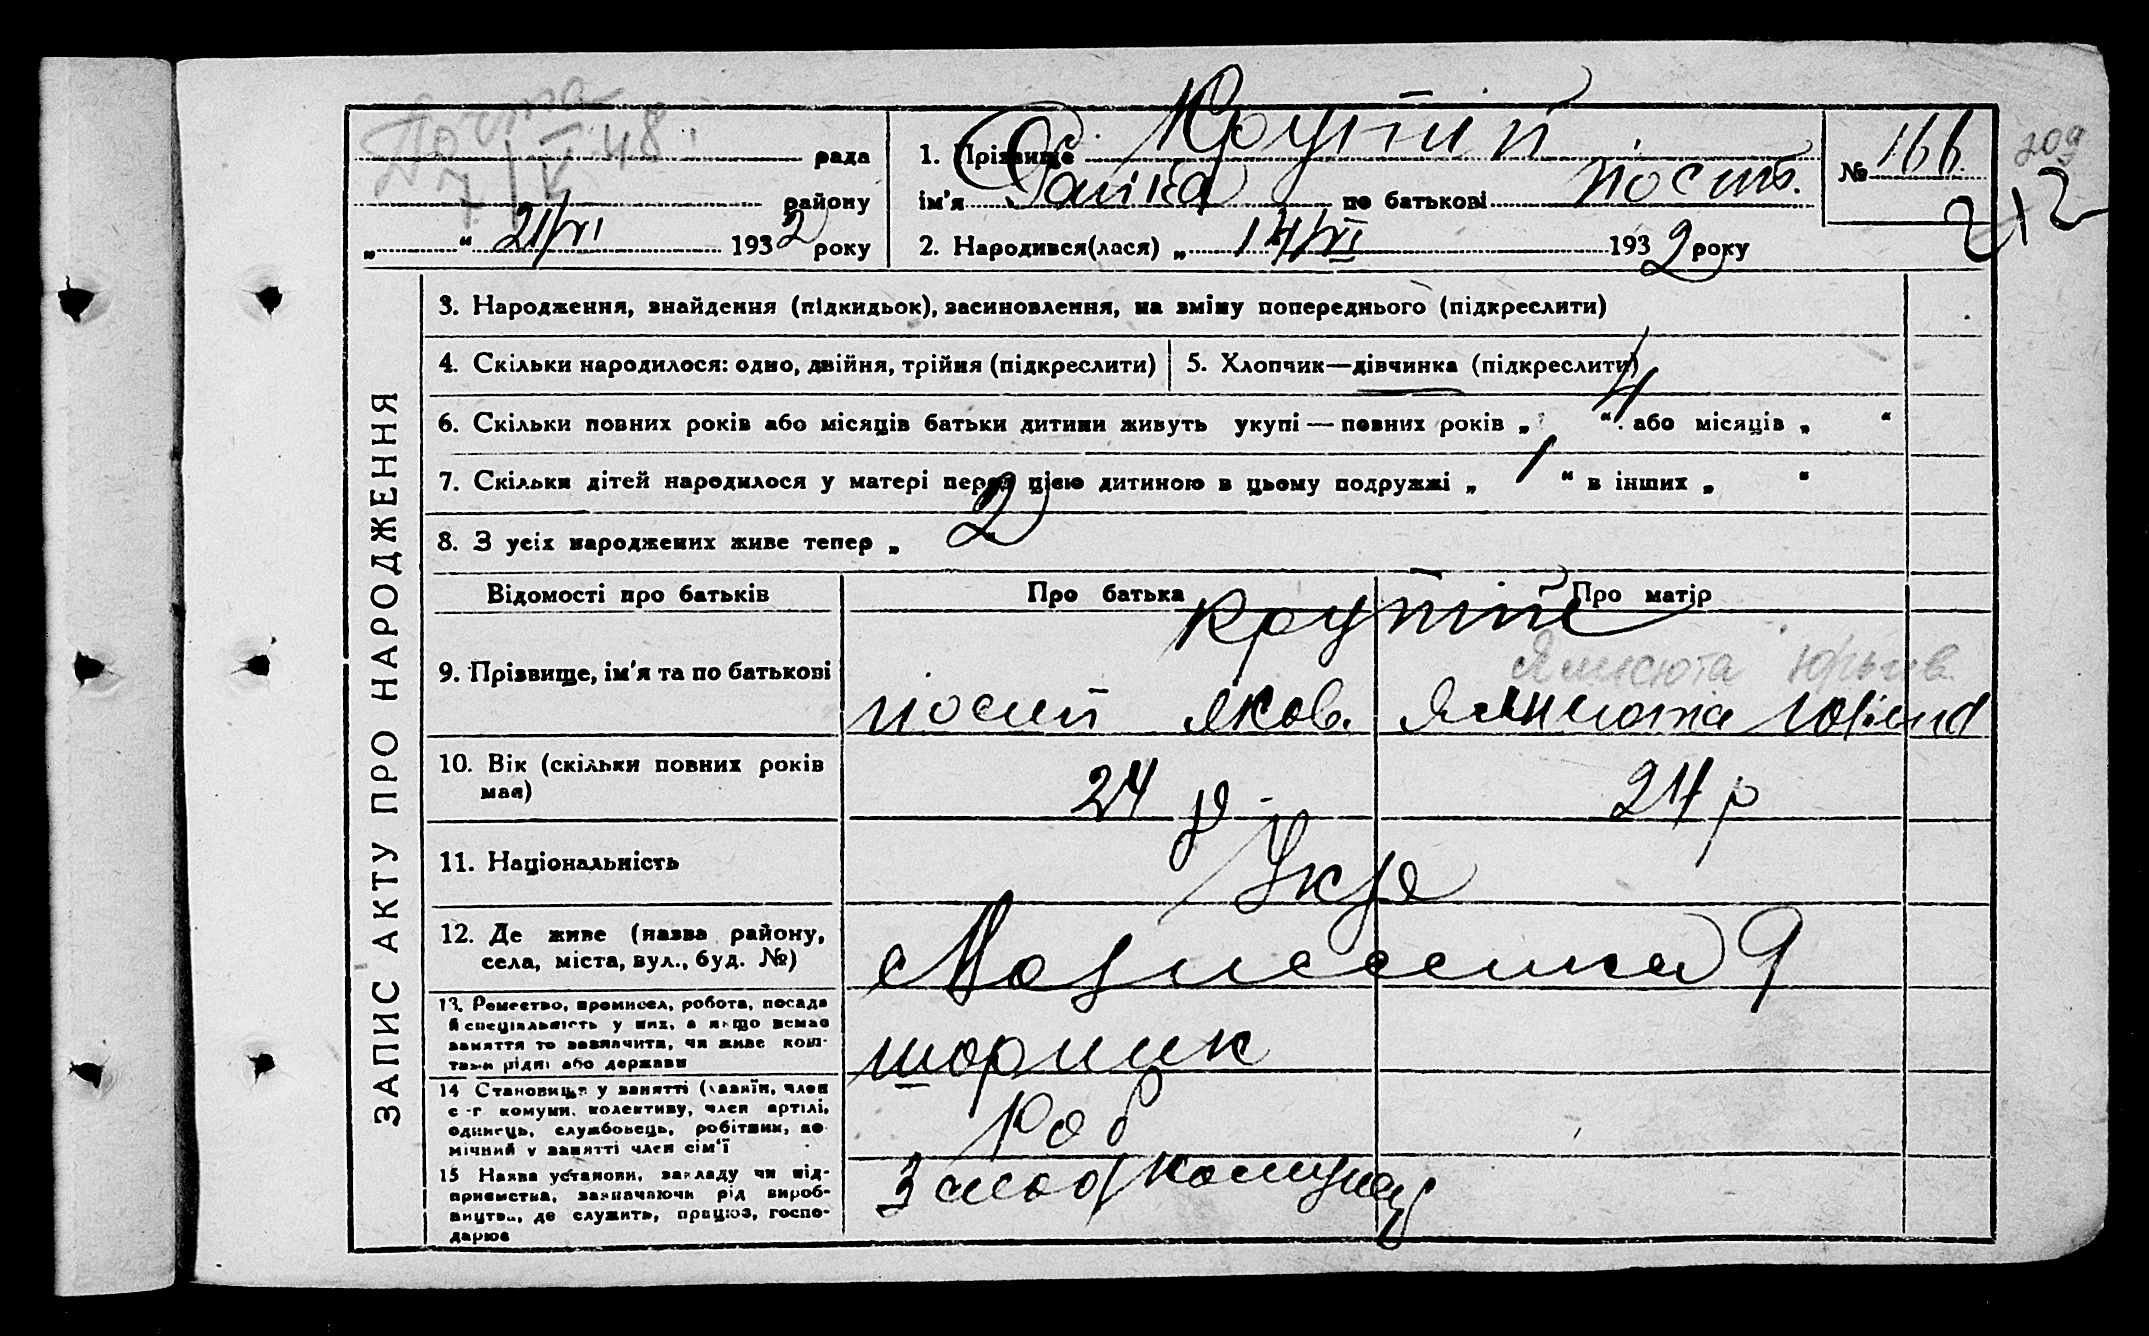 Почта
7/V 48.
рада
району
„ “ 21/VI 1932 року
1. Прізвище Крупій
ім'я Раїка по батькові Йосип.
2. Народився(лася) „ 14/VI 1932 року
№ 166.
209
212
ЗАПИС АКТУ ПРО НАРОДЖЕННЯ
3. Народження, знайдення (підкидьок), засиновлення, на зміну попереднього (підкреслити)
4. Скільки народилося: одно, двійня, трійня (підкреслити)
5. Хлопчик—дівчинка (підкреслити)
6. Скільки повних років або місяців батьки дитини живуть укупі — повних років „ 4 “ або місяців „ “
7. Скільки дітей народилося у матері перед цією дитиною в цьому подружжі „ 1 “ в інших „ “
8. З усіх народжених живе тепер „ 2
Відомості про батьків Про батька Про матір
9. Прізвище, ім'я та по батькові
Крупій
Йосип Яков.
10. Вік (скільки повних років
має)
24 р. 24 р
11. Національність
Укр
12. Де живе (назва району,
села, міста, вул., буд. №)
9
13. Ремество, промисел, робота, посада
й спеціяльність у них, а якщо немає
заняття то зазначити, чи живе кош-
тами рідні або держави
шорник
14 Становище у занятті (хазяїн, член
с.-г комуни, колективу, член артілі,
одинець, службовець, робітник, по-
мічний у занятті член сім'ї
Роб
15 Назва установи, закладу чи під-
приємства, зазначаючи рід вироб-
ництва, де служить, працює, госпо-
дарює